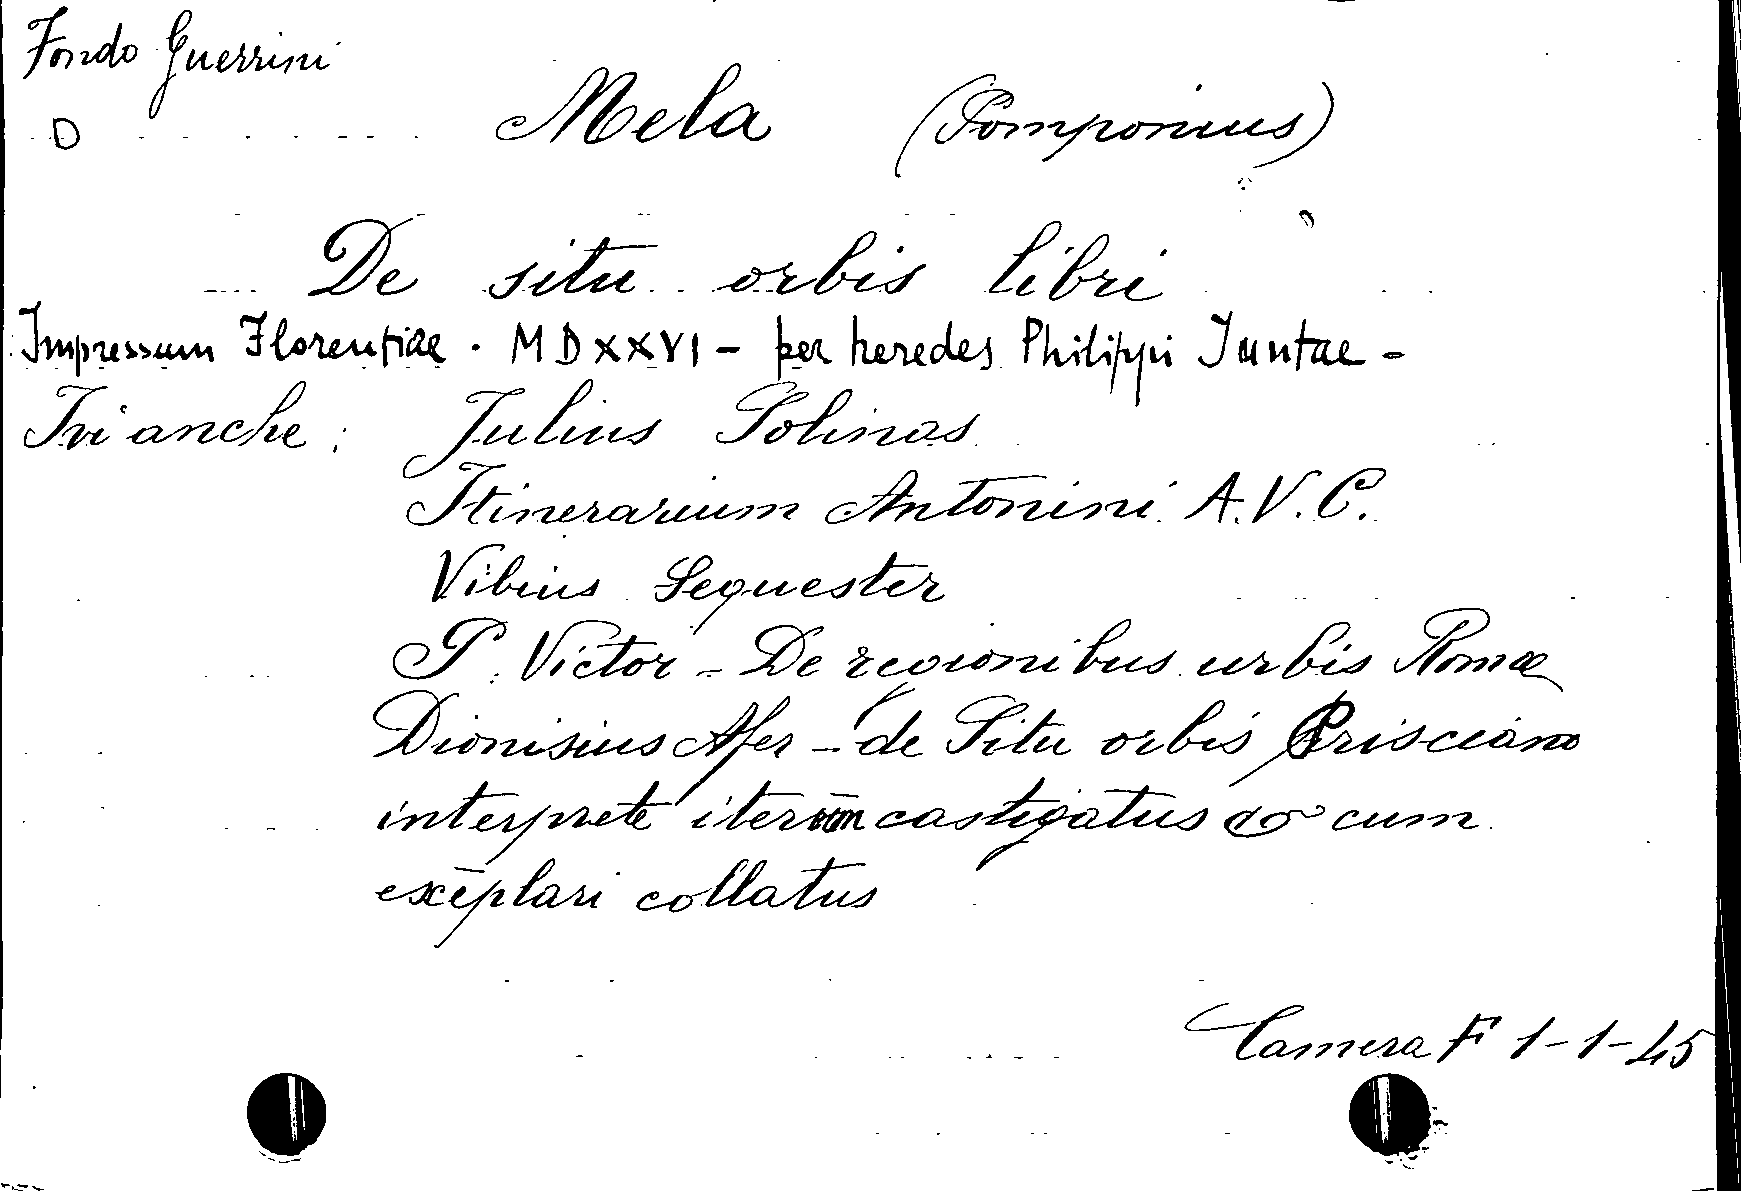 Fondo Guerrini
D
Mela (Pomponius)
De situ orbis libri
Impressum Florentiae . MDXXVI - per heredes Philippi Juntae -
Ivi anche : Julius Solinas
Itinerarium Antonini A.V.C.
Vibius Sequester
P. Victor - De regionibus urbis Romæ
Dionisius Afer - de Situ orbis Prisciano
interprete iterum castigatus & cum
exēplari collatus
Camera F 1-1-45